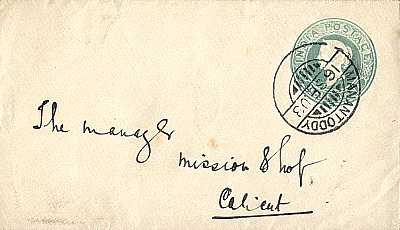 INDIA POSTAGE
MANANTODDY
The manager
mission Shop
Calicut